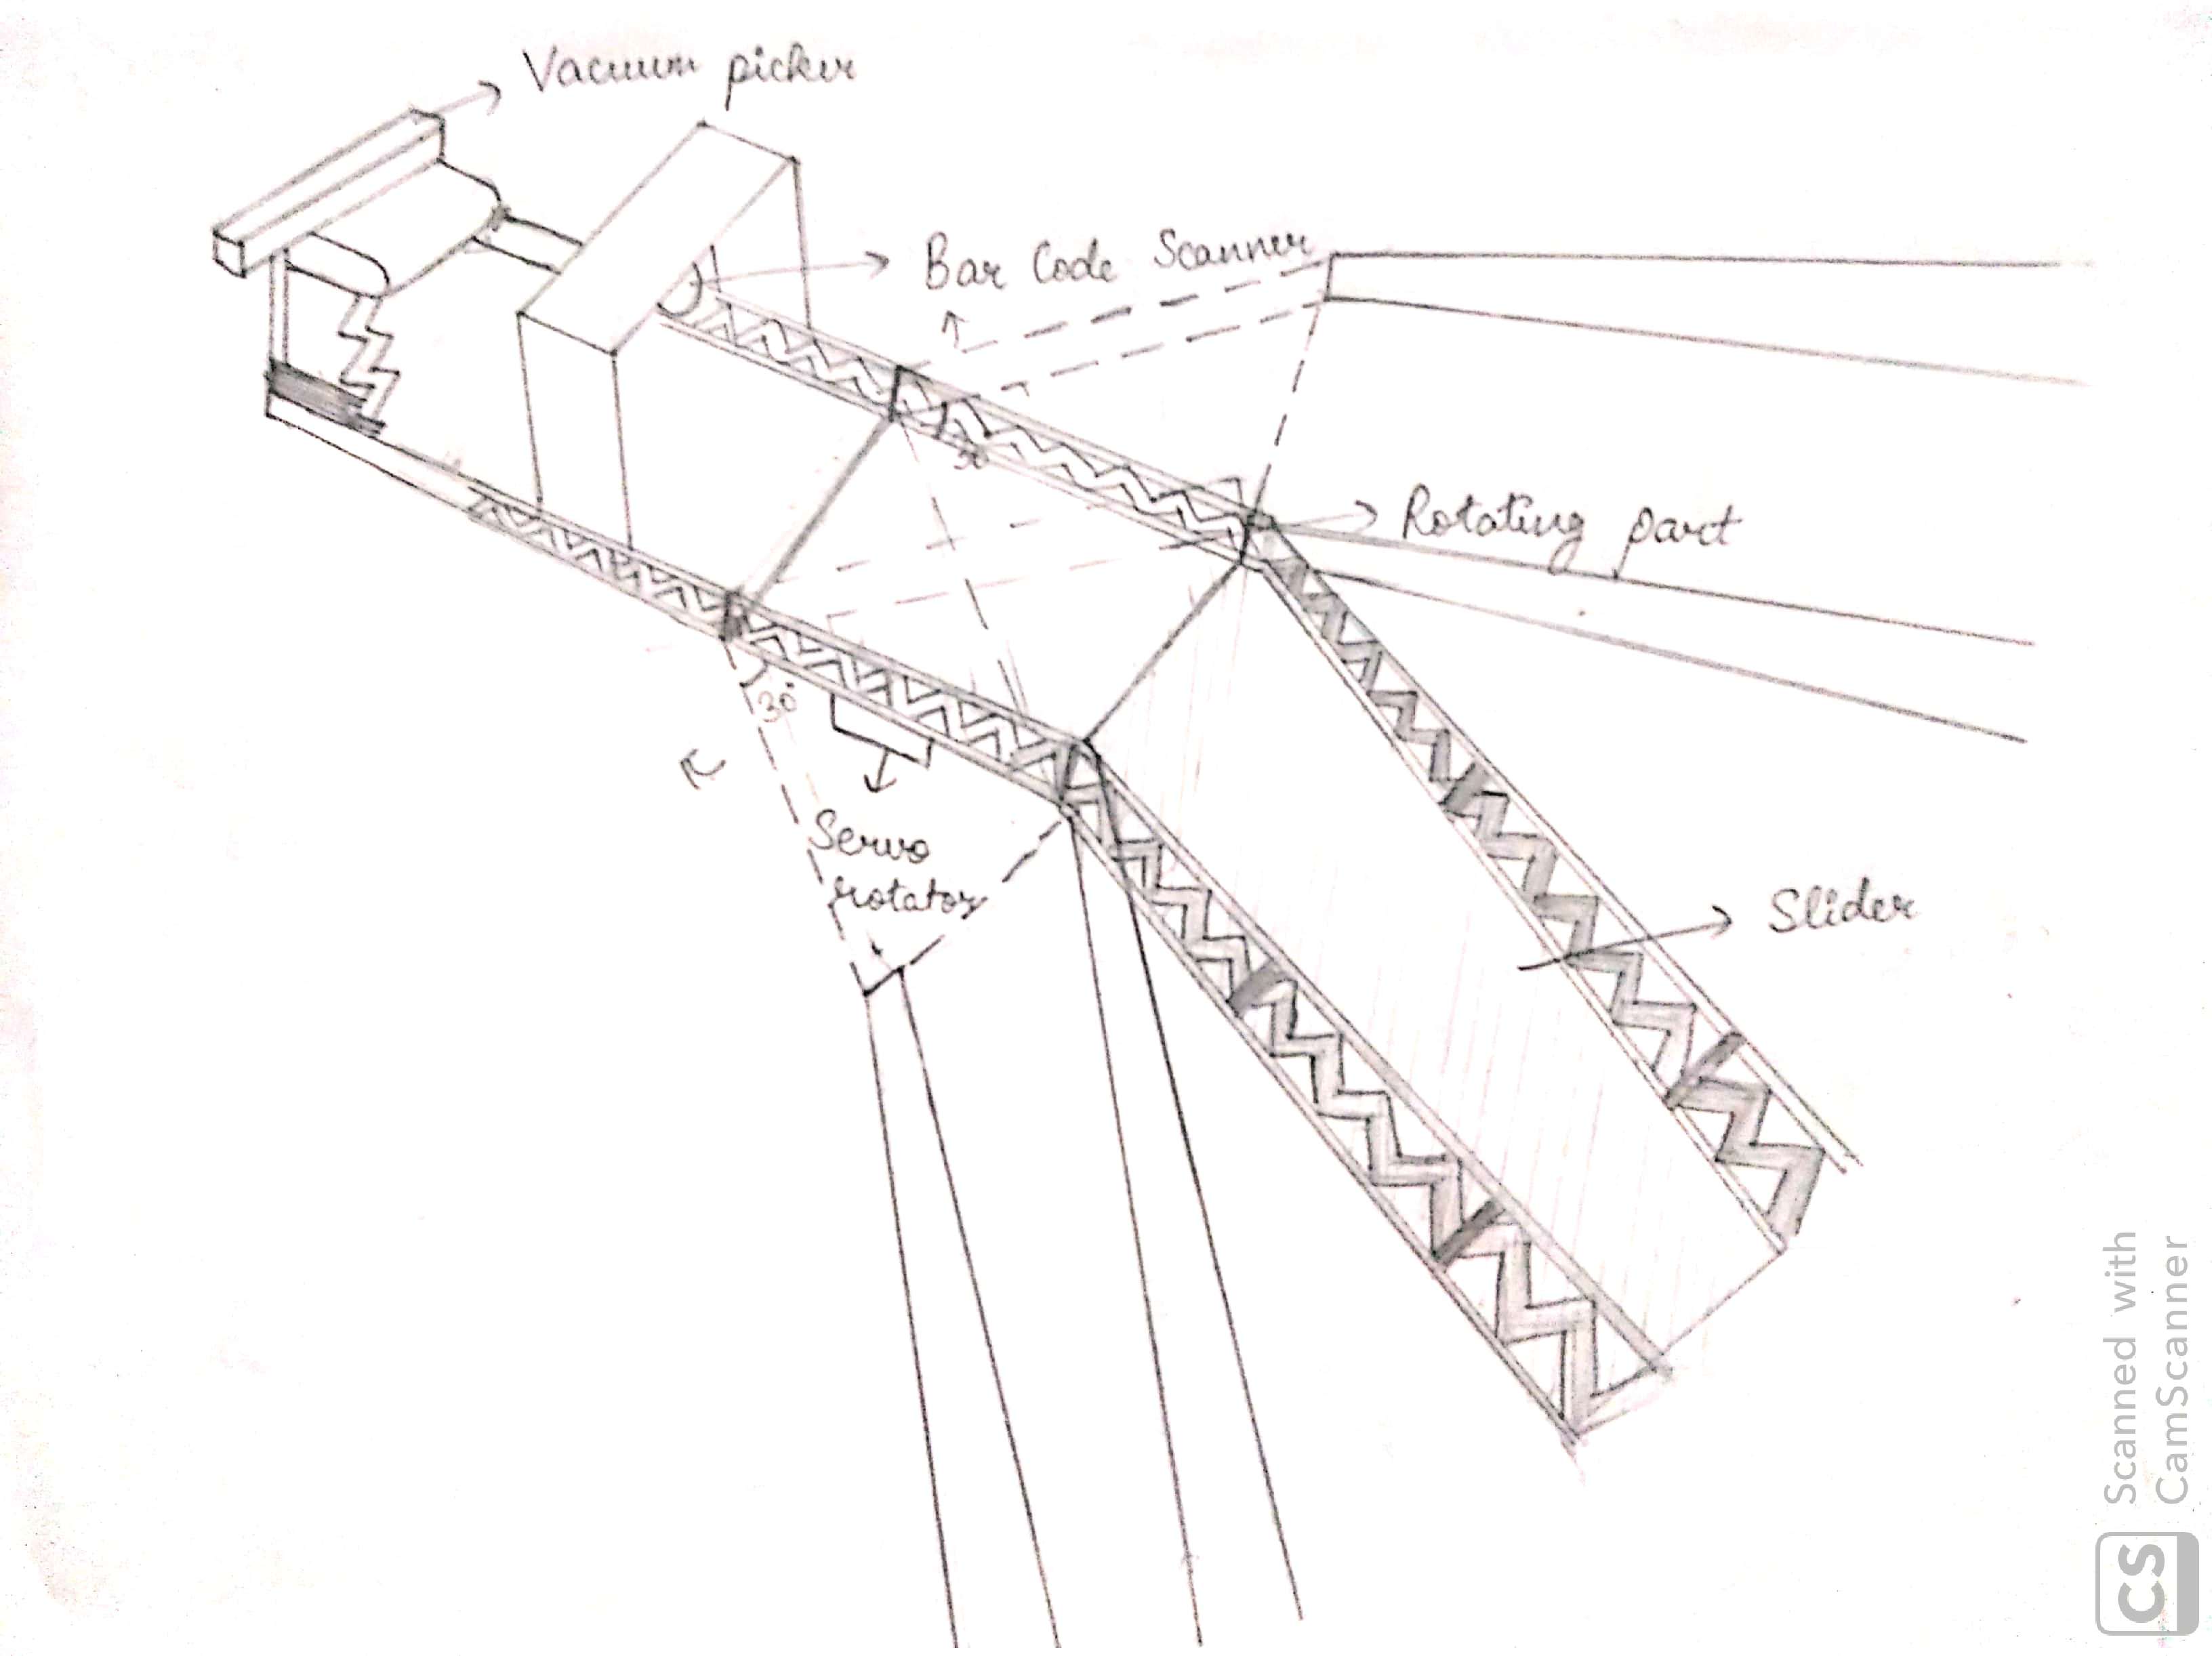 Vacuum picker
Bar Code Scanner
30
Rotating part
30°
Servo
rotator
Slider
Scanned with
CamScanner
CS